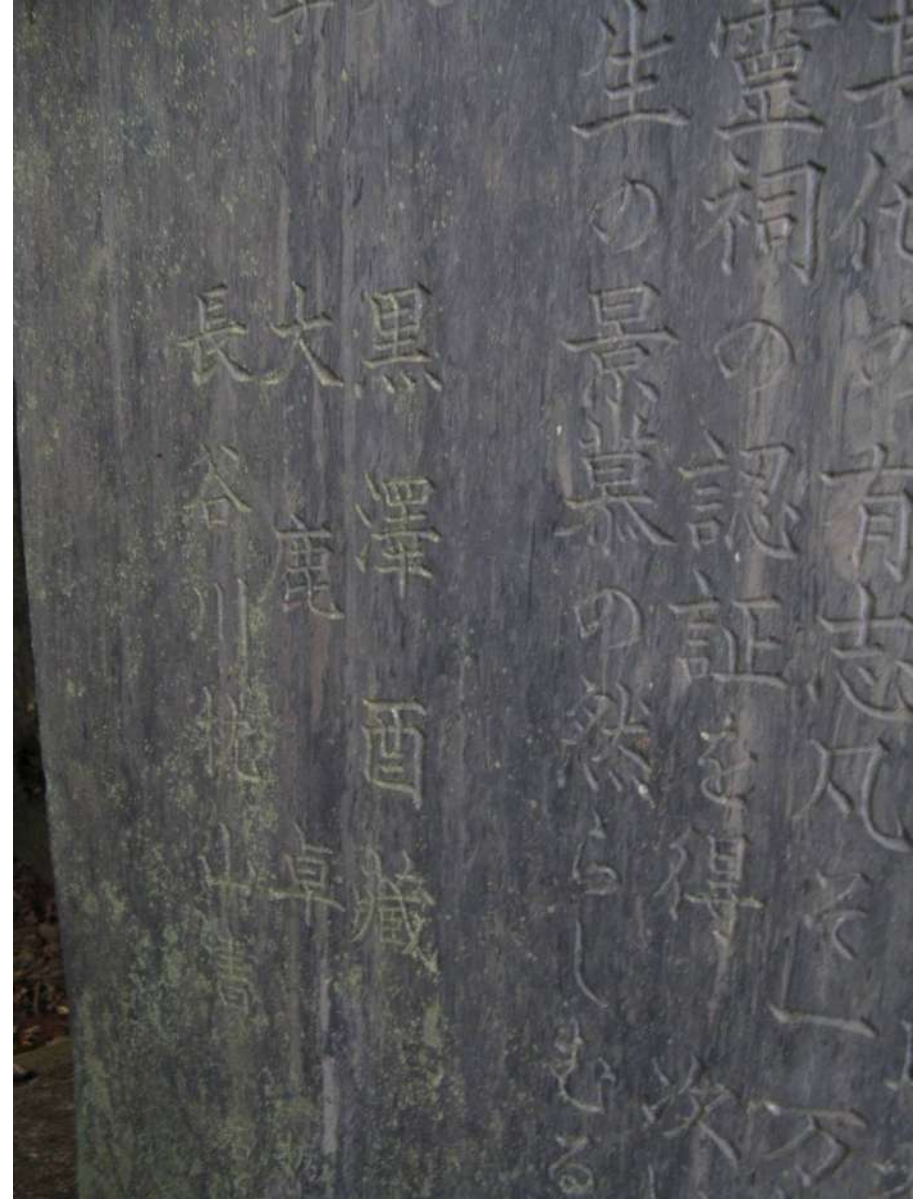 其他の有志凡そ一万
靈祠の認証を得 次
生の景慕の然らしむる
黒澤酉藏
大鹿 卓
長谷川 山書